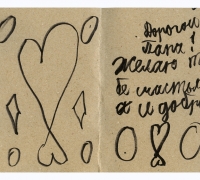 Дорогой
Папа!
Желаю те
бе счастья
х и добра